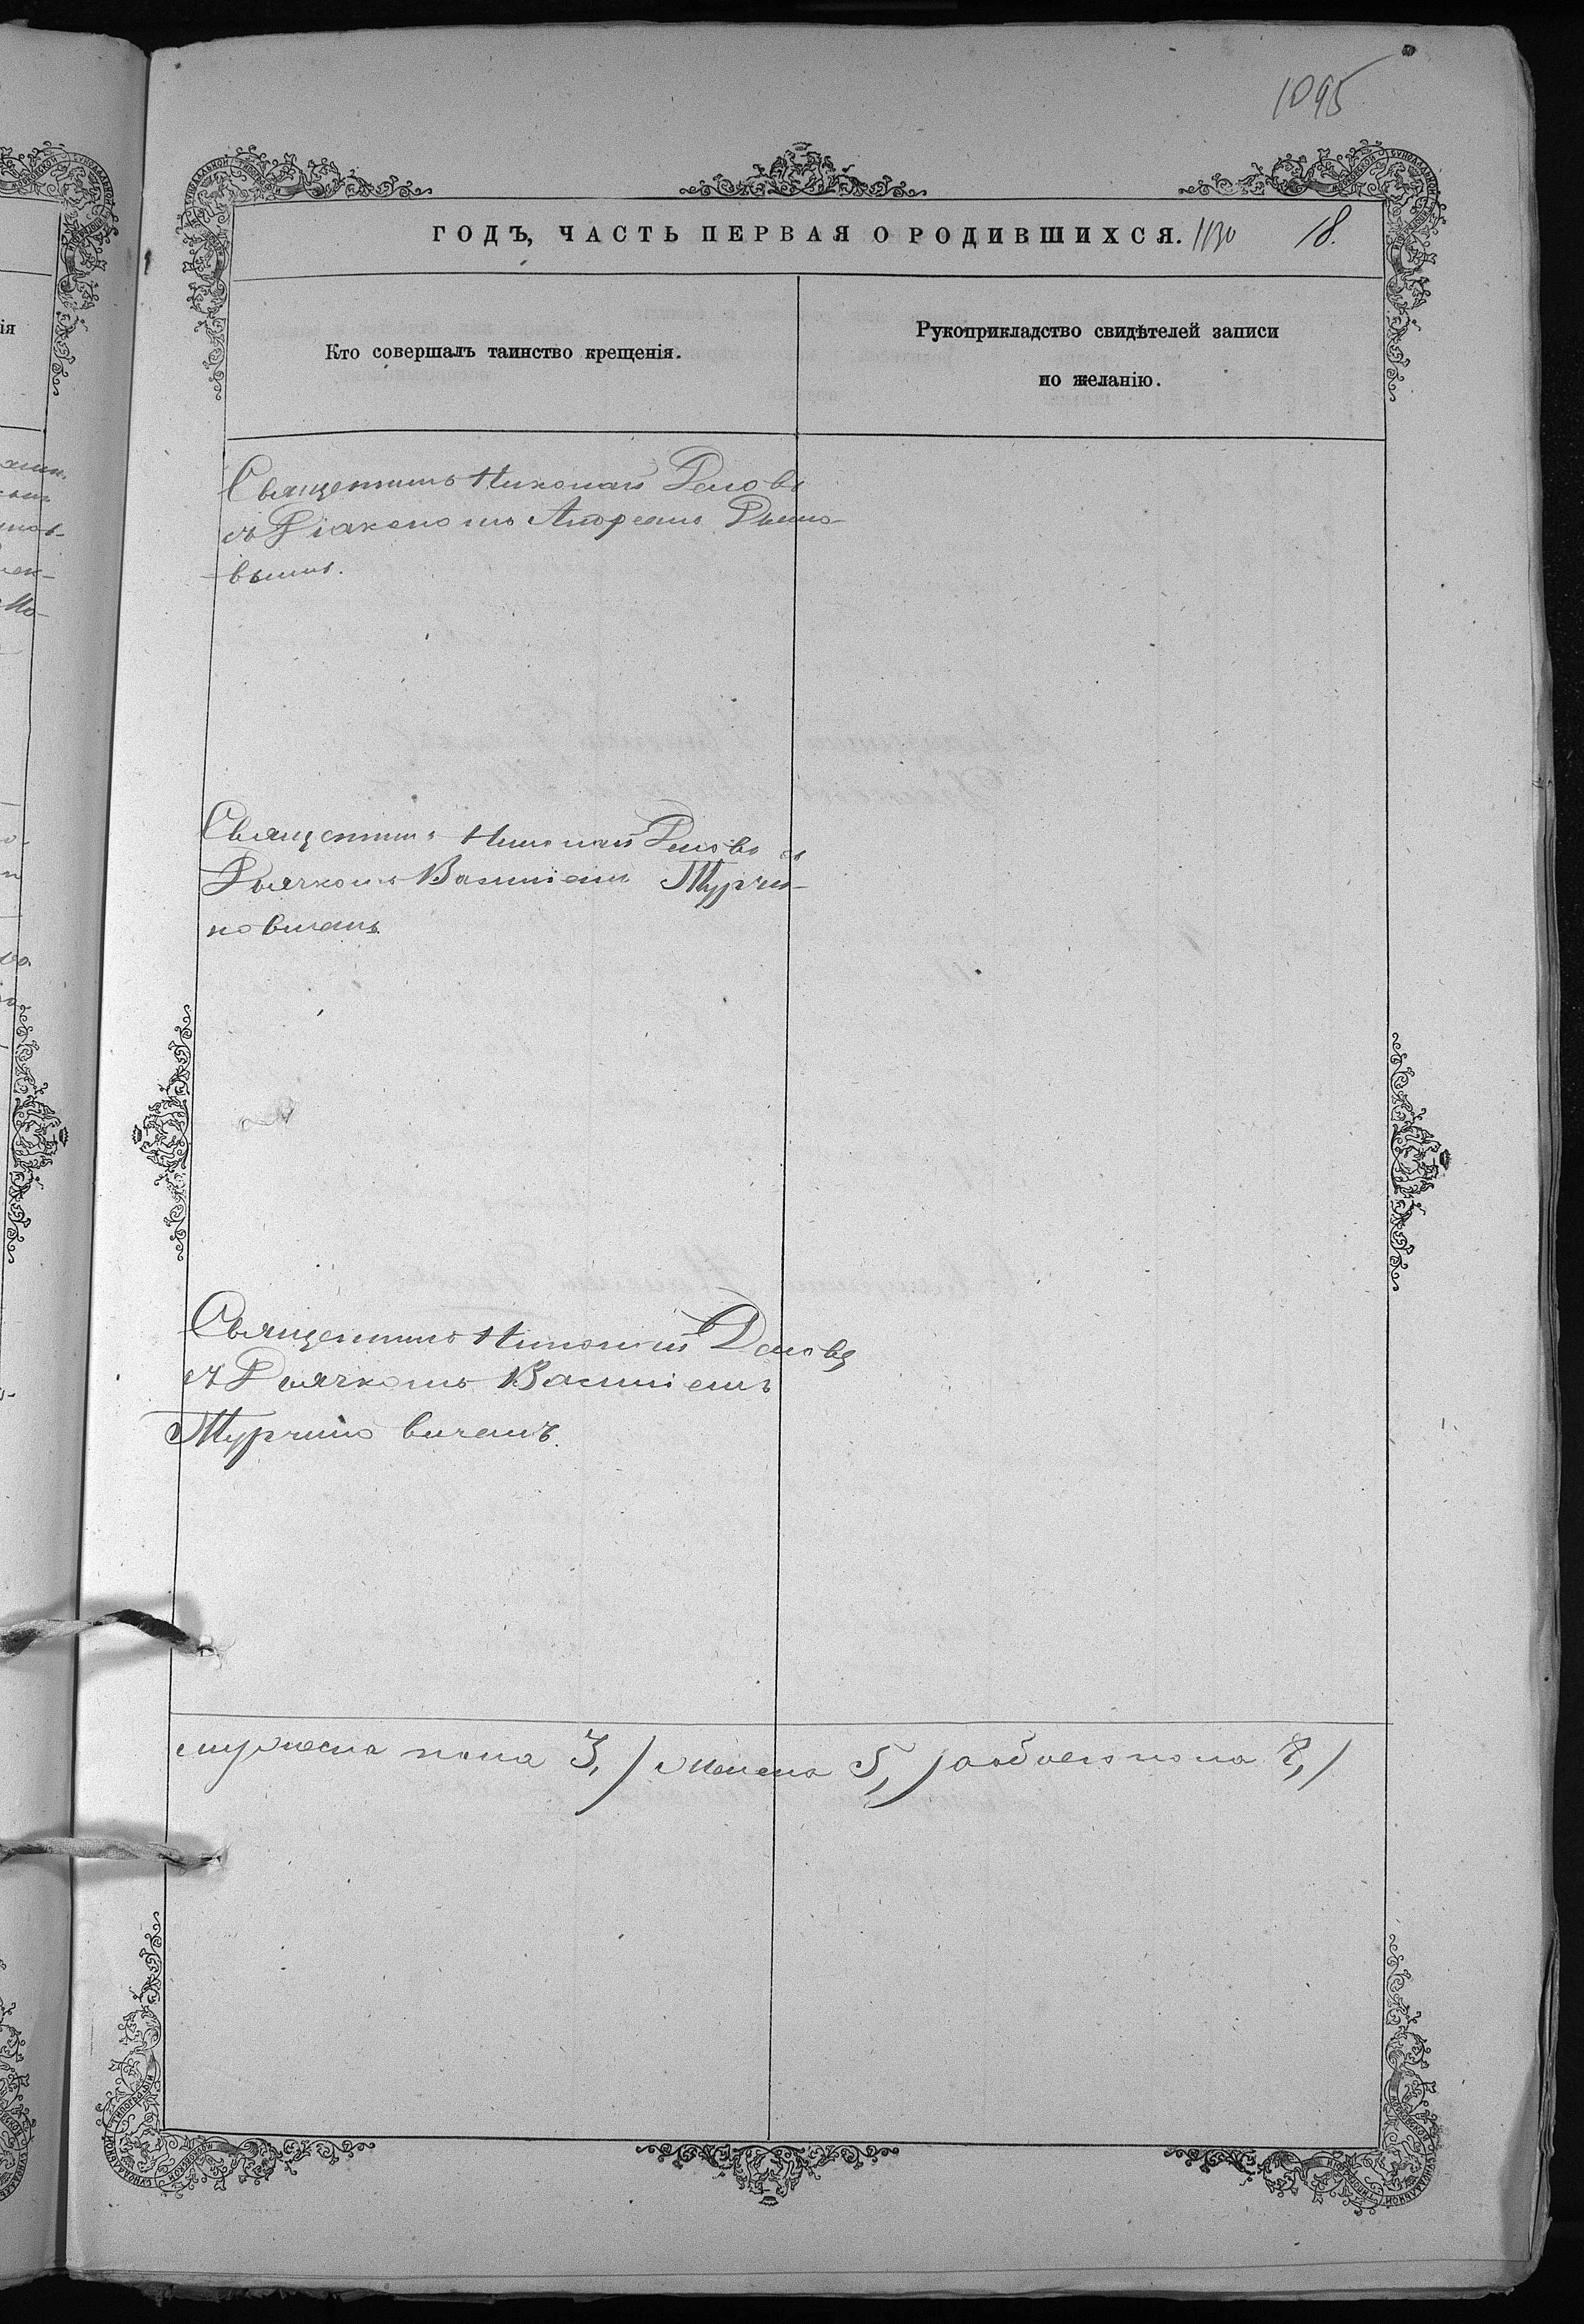 1095
ГОДЪ, ЧАСТЬ ПЕРВАЯ О РОДИВШИХСЯ. 1130 18.
Кто совершалъ таинство крещенія.
Рукоприкладство свидѣтелей записи
по желанію.
Священникъ Николай
съ Діакономъ Андреемъ
вымъ.
Священникъ Николай съ
Дьячкомъ Василіемъ Турчи-
новичемъ
Священникъ Николай
съ Дьячкомъ Василіемъ
Турчиновичемъ.
мужеска пола 3, женска 5, а обоего пола 8,